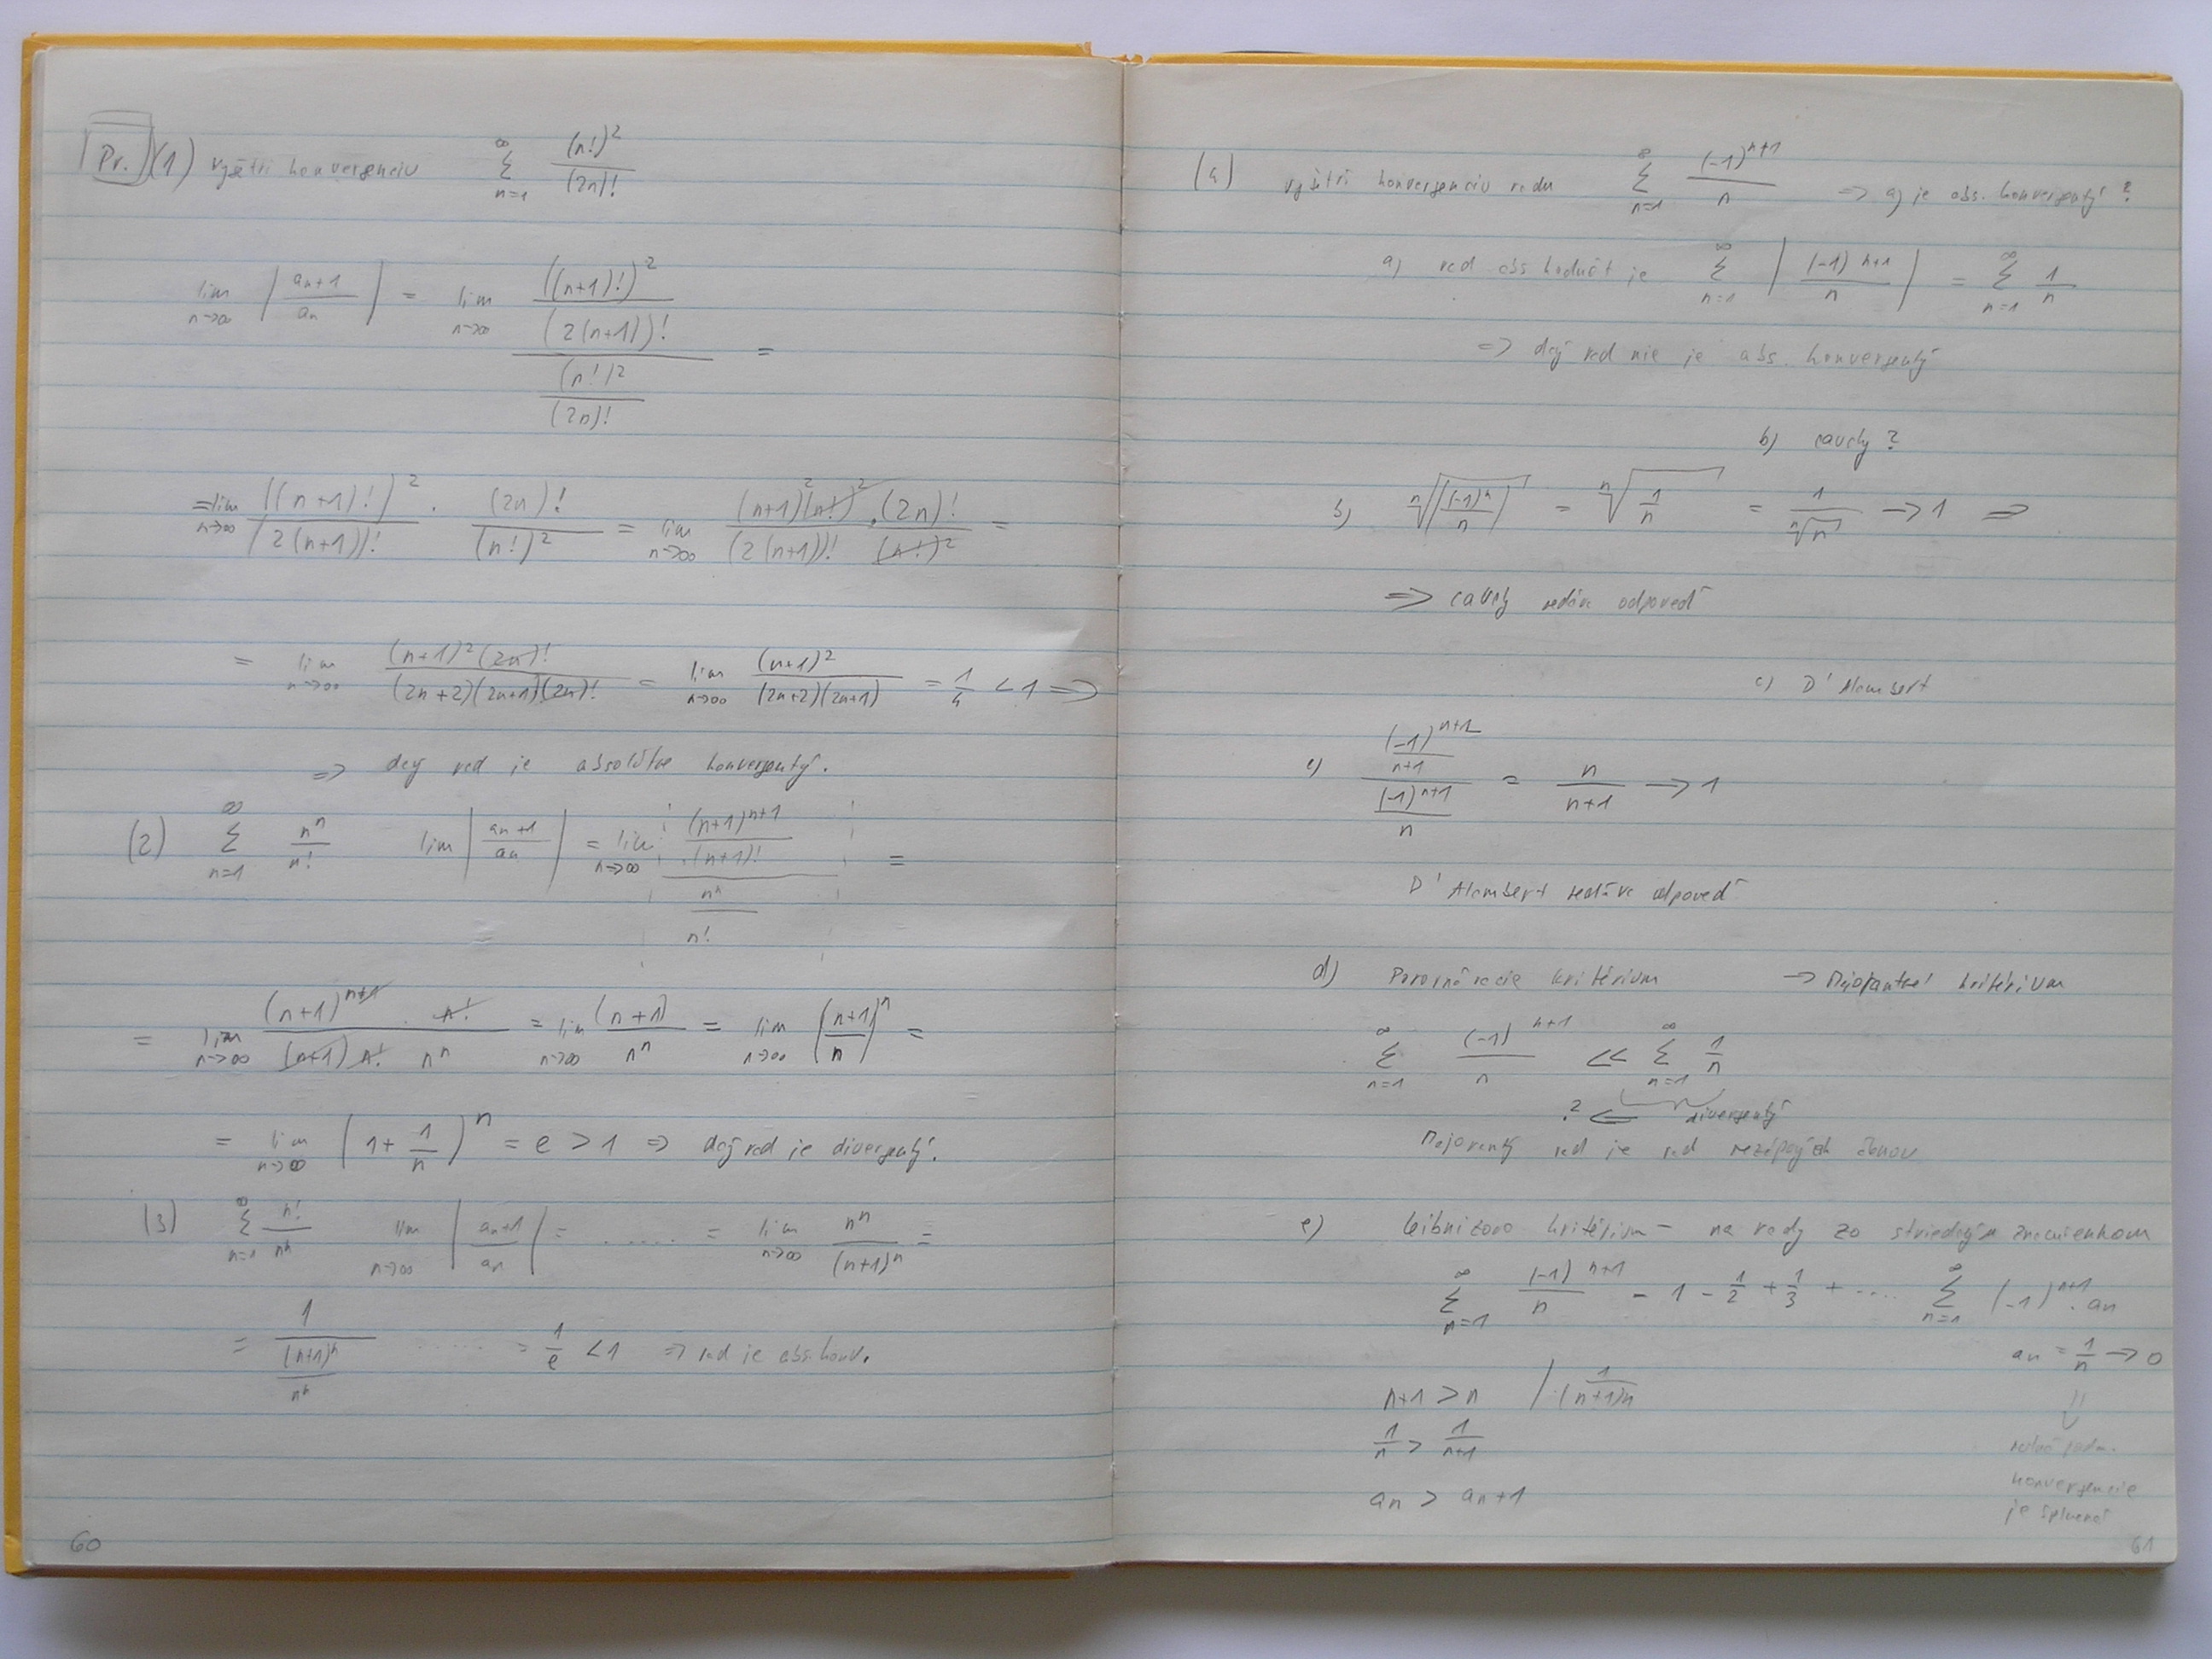 Pr. (1) vyšetri konvergenciu ∞ Σ n=1 (n!)² / (2n)!
lim n→∞ | an+1 / an | = lim n→∞ ((n+1)!)² / (2(n+1))! / (n!)² / (2n)! =
= lim n→∞ ((n+1)!)² / (2(n+1))! · (2n)! / (n!)² = lim n→∞ (n+1)² (n!)² · (2n)! / (2(n+1))! (n!)² =
= lim n→∞ (n+1)² (2n)! / (2n+2)(2n+1)(2n)! = lim n→∞ (n+1)² / (2n+2)(2n+1) = 1/4 < 1 ⇒
⇒ daný rad je absolútne konvergentný.
(2) ∞ Σ n=1 nⁿ / n! lim | an+1 / an | = lim n→∞ (n+1)ⁿ⁺¹ / (n+1)! / nⁿ / n! =
= lim n→∞ (n+1)ⁿ⁺¹ · n! / (n+1) n! nⁿ = lim n→∞ (n+1) / nⁿ = lim n→∞ ((n+1) / n)ⁿ =
= lim n→∞ (1 + 1/n)ⁿ = e > 1 ⇒ daný rad je divergentný.
(3) ∞ Σ n=1 n! / nⁿ lim n→∞ | an+1 / an | = ...... = lim n→∞ nⁿ / (n+1)ⁿ =
= 1 / (n+1)ⁿ / nⁿ ...... = 1/e < 1 ⇒ rad je abs. konv.
60
(4) vyšetri konvergenciu radu ∞ Σ n=1 (-1)ⁿ⁺¹ / n ⇒ a) je abs. konvergentný?
a) rad abs hodnôt je ∞ Σ n=1 | (-1)ⁿ⁺¹ / n | = ∞ Σ n=1 1/n
⇒ daný rad nie je abs. konvergentný
b) cauchy?
b) ⁿ√|(-1)ⁿ / n| = ⁿ√(1/n) = 1 / ⁿ√n → 1 ⇒
⇒ cauchy nedáva odpoveď
c) D'Alambert
c) (-1)ⁿ⁺² / n+1 / (-1)ⁿ⁺¹ / n = n / n+1 → 1
D'Alambert nedáva odpoveď
d) Porovnávacie kritérium → Majorantné kritérium
∞ Σ n=1 (-1)ⁿ⁺¹ / n << ∞ Σ n=1 1/n
? ⇐ divergentný
Majorantný rad je rad nezáporných členov
e) Leibnizovo kritérium - na rady zo striedavým znamienkom
∞ Σ n=1 (-1)ⁿ⁺¹ / n = 1 - 1/2 + 1/3 + .... ∞ Σ n=1 (-1)ⁿ⁺¹ · an
an = 1/n → 0
⇓
nutná podm.
konvergencie
je splnená
n+1 > n / · 1 / (n+1)n
1/n > 1/n+1
an > an+1
61